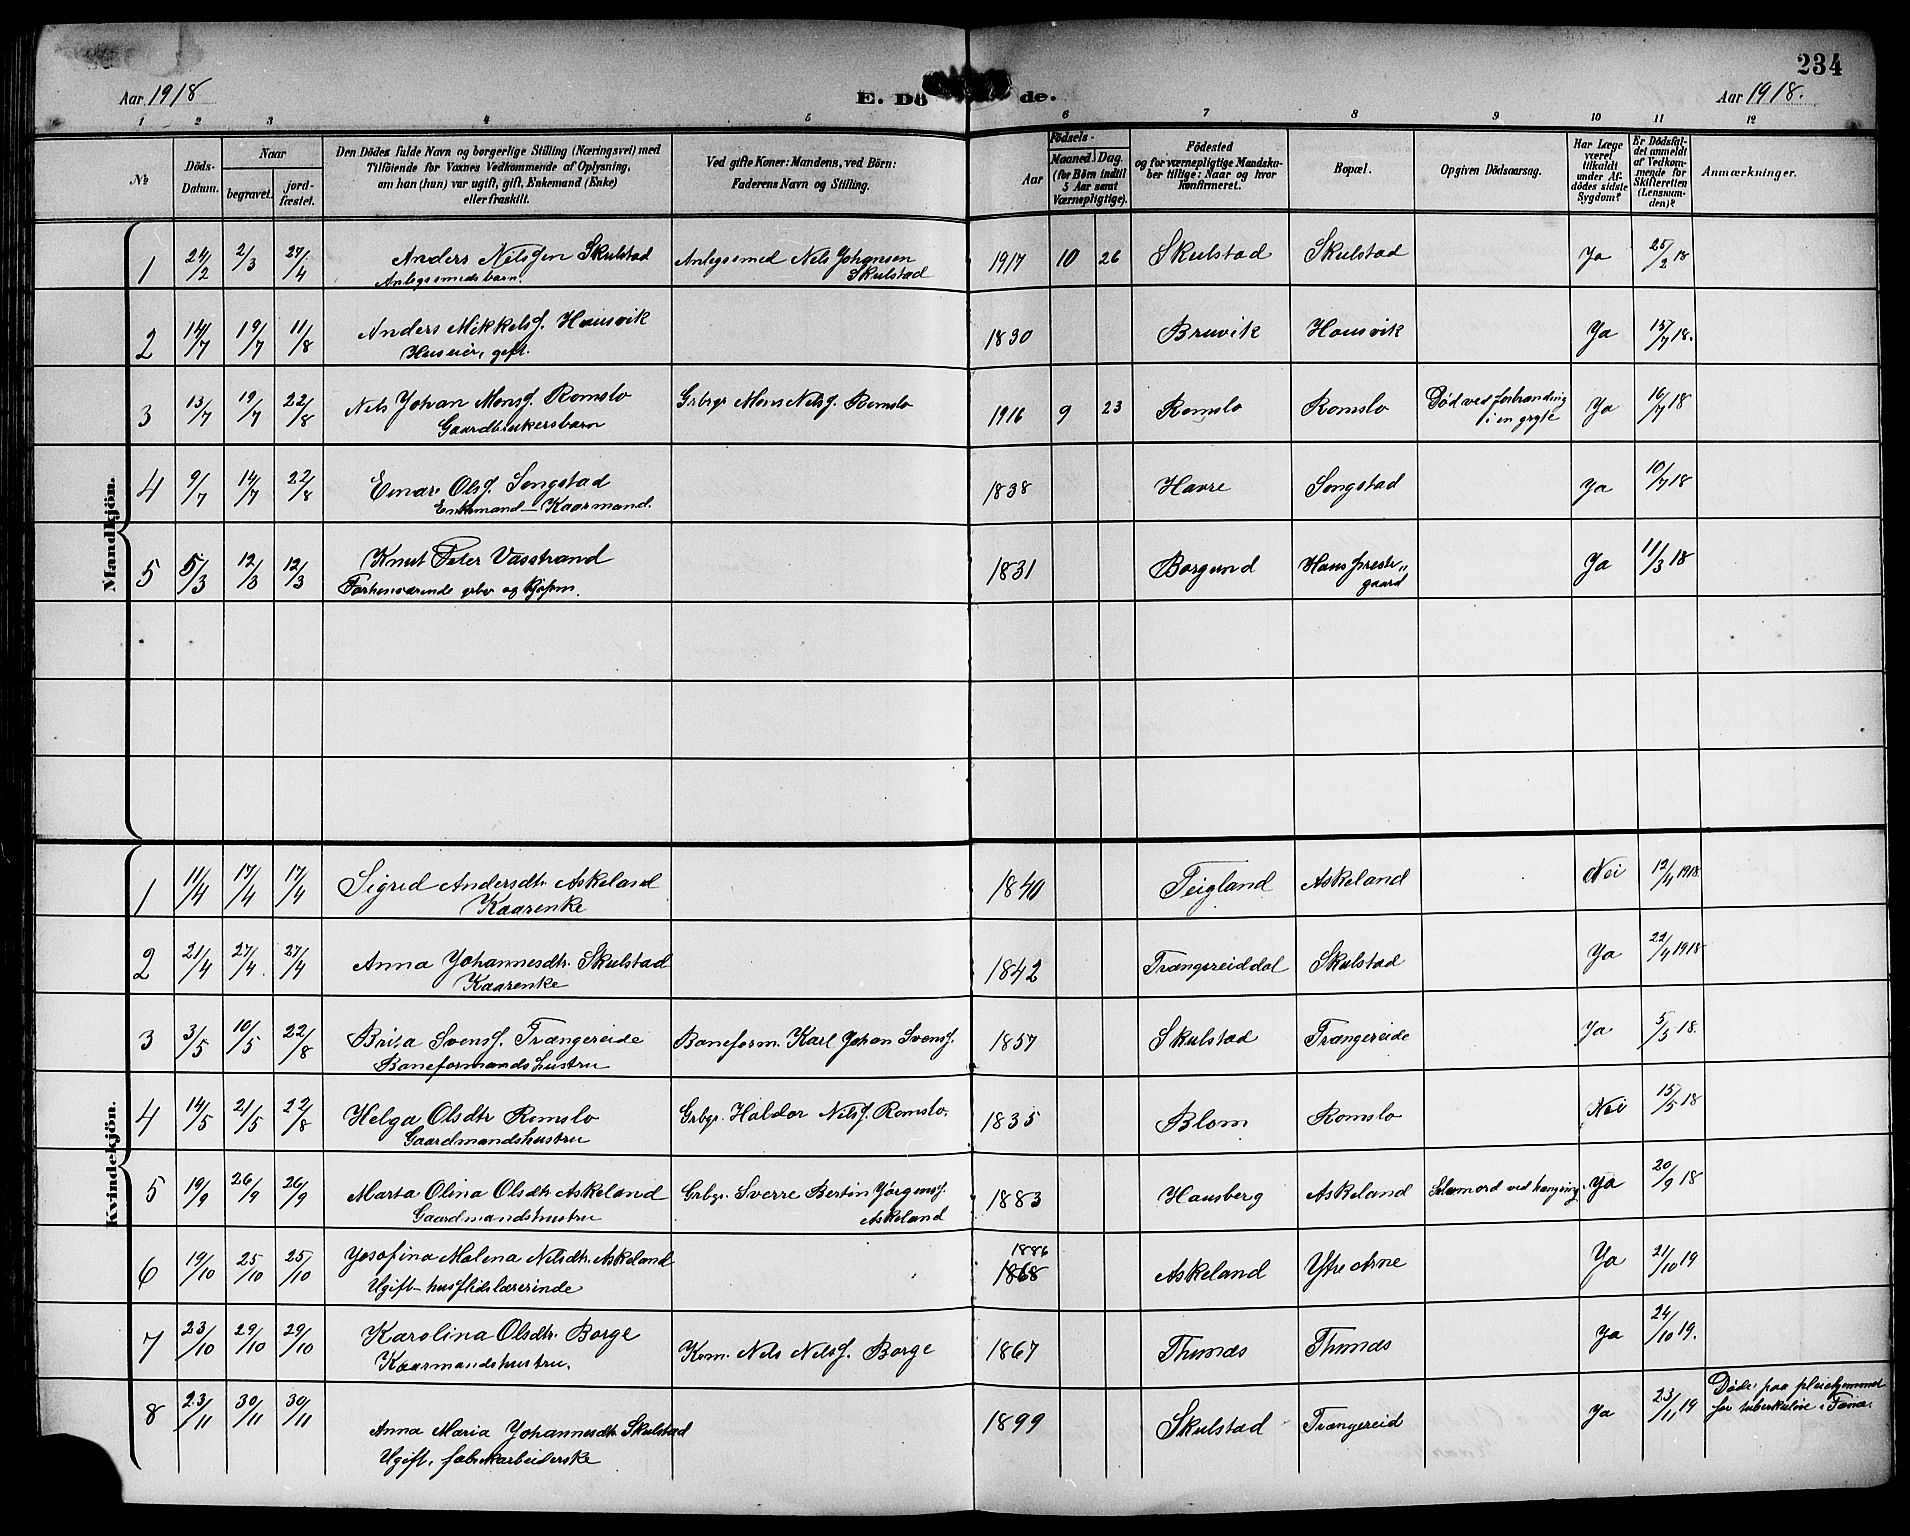 234
Aar 1918
E. Dö de.
Aar 1918.
1 2 3 4 5 6 7 8 9 10 11 12
No
Döds-Datum.
Naar
begravet.
jord-fæstet.
Den Dödes fulde Navn og borgerlige Stilling (Næringsvei) med
Tilföiende for Voxnes Vedkommende af Oplysning,
om han (hun) var ugift, gift, Enkemand (Enke)
eller fraskilt.
Ved gifte Koner: Mandens, ved Börn:
Faderens Navn og Stilling.
Födsels-
Aar
Maaned. Dag.
(for Børn indtil
5 Aar samt
Værnepligtige).
Födested
og for værnepligtige Mandska-
ber tillige: Naar og hvor
konfirmeret.
Bopæl.
Opgiven Dödsaarsag.
Har Læge
været
tilkaldt
under Af-
dødes sidste
Sygdom?
Er Dödsfal-
det anmeldt
af Vedkom-
mende for
Skifteretten
(Lensman-
den)?
Anmærkninger.
Mandkjön.
1 24/2 2/3 27/4 Anders Nilssen Skulstad Anlegssmed Nels Johansen 1917 10 26 Skulstad Skulstad Ja 25/2 18
Anlegssmedsbarn. Skulstad
2 14/7 19/7 11/8 Anders Mikkels. Housvik 1830 Bruvik Housvik Ja 15/7 18.
Huseier, gift.
3 13/7 19/7 22/8 Nels Johan Mons. Romslo Grbgr Mons Nels. Romslo 1916 9 23 Romslo Romslo Död ved forbrænding Ja 16/7 18
Gaardbrukersbarn i en gryte
4 9/7 14/7 22/8 Einar Ols. Songstad 1838 Havre Songstad Ja 10/7 18
Enkemand - Kaarmand.
5 5/3 12/3 12/3 Knut Peter Vasstrand 1831 Borgund Haus preste- Ja 11/3 18
Forhenværende grbr og gaard
Kvindekjön.
1 11/4 17/4 17/4 Sigrid Andersdtr Askeland 1840 Teigland Askeland Nei 12/4 1918
Kaarenke
2 21/4 27/4. 27/4 Anna Johannesdtr. Skulstad 1842 Trængereiddal Skulstad Ja 22/4 1918
Kaarenke
3 3/5 10/5 22/8 Brita Svens. Trængereide Baneform. Karl Johan Svens. 1857 Skulstad Trængereide Ja 5/5 18.
Baneformandshustru
4 14/5 21/5 22/8 Helga Olsdtr Romslo Grbgr. Haldor Nils. Romslo. 1835 Blom Romslo Nei 15/5 18
Gaardmandshustru
5 19/9 26/9 26/9 Marta Olina Olsdtr Askeland Grbgr. Sverre Bertin Jørgens. 1883 Hausberg Askeland Selvmord ved hængning. Ja 20/9 18
Gaardmandshustru Askeland
6 19/10 25/10 25/10 Josefina Malena Nilsdtr. Askeland 1886 1868 Askeland Ytre Arne Ja 21/10 19
Ugift - husflidslærerinde
7 23/10 29/10 29/10 Karolina Olsdtr. Borge Kom. Nels Nels. Borge 1867 Thunæs Thunæs Ja 24/10 19.
Kaarmandshustru.
8 23/11 30/11 30/11 Anna Maria Johannesdtr Skulstad 1899 Skulstad Trængereid Ja 23/11 19 Døde paa pleiehjemmet
for tuberkuløse i Fana.
Ugift, fabrikarbeiderske